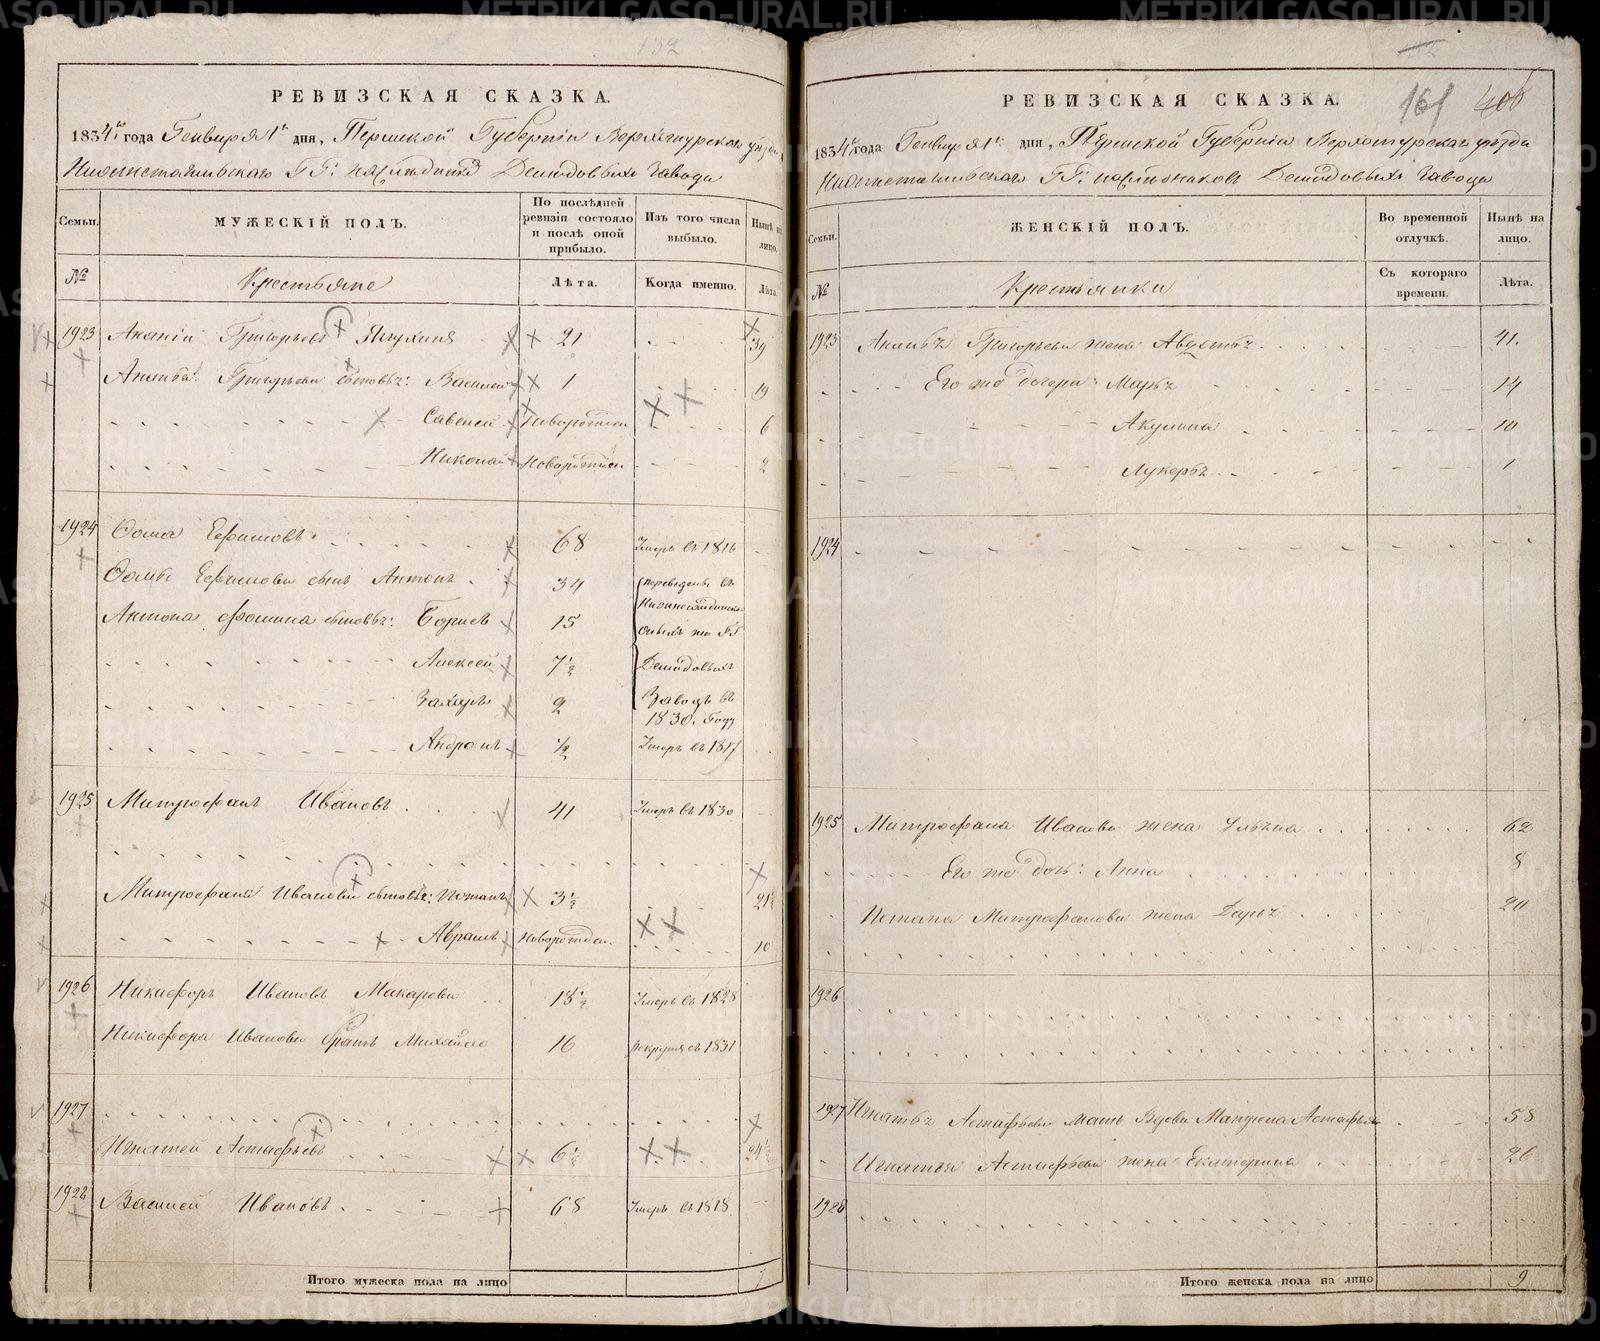 РЕВИЗСКАЯ СКАЗКА.
1834 года Генваря 1 дня, Пермской Губерніи Верхотурскаго уѣзда
Нижнетагильскаго ГГ: наслѣдниковъ Демидовыхъ Завода
Семьи. МУЖЕСКІЙ ПОЛЪ. По послѣдней ревизіи состояло и послѣ оной прибыло. Изъ того числа выбыло. Нынѣ на лицо.
№ Крестьяне Лѣта. Когда именно. Лѣта.
1923 Ананій Григорьевъ 21 39
Ананья Григорьева сыновья: Василей 1 19
Савелей Новорожден 6
Николай Новорожден 2
1924 Ѳома Ефимовъ 68 Умеръ въ 1816
Ѳомы Ефимова сынъ Антонъ 34 переведены въ
Антона Фомина сыновья: Борисъ 15
Алексей 7½ Демидовыхъ
Захаръ 2 Заводъ въ 1830. Году
Андронъ ½ Умеръ въ 1817
1925 Митрофанъ Ивановъ 41 Умеръ въ 1830
Митрофана Иванова сыновья: Потапъ 3½ 21½
Аврамъ Новорожден. 10
1926 Никифоръ Ивановъ Макаровъ 18½ Умеръ въ 1828
Никифора Иванова братъ Михайло 16 Рекрутъ въ 1831
1927
Игнатей Астафьевъ 6½ 24½
1928 Василей Ивановъ 68 Умеръ въ 1818
Итого мужеска пола на лицо 7
РЕВИЗСКАЯ СКАЗКА. 161 406
1834 года Генваря 1 дня, Пермской Губерніи Верхотурскаго уѣзда
Нижнетагильскаго ГГ: наслѣдниковъ Демидовыхъ Завода
Семьи. ЖЕНСКІЙ ПОЛЪ. Во временной отлучкѣ. Нынѣ на лицо.
№ Крестьянки Съ котораго времени. Лѣта.
1923 Ананья Григорьева жена Авдотья 41.
Его же дочери: Марья 14
Акулина 10
Лукерья 1
1924
1925 Митрофана Иванова жена Ульяна 62
Его же дочь: Анна 8
Потапа Митрофанова жена Дарья 20
1926
1927 Игнатья Астафьева мать Вдова Матрена Астафьева 58
Игнатья Астафьева жена Екатерина 26
1928
Итого женска пола на лицо 9
METRIKI.GASO-URAL.RU